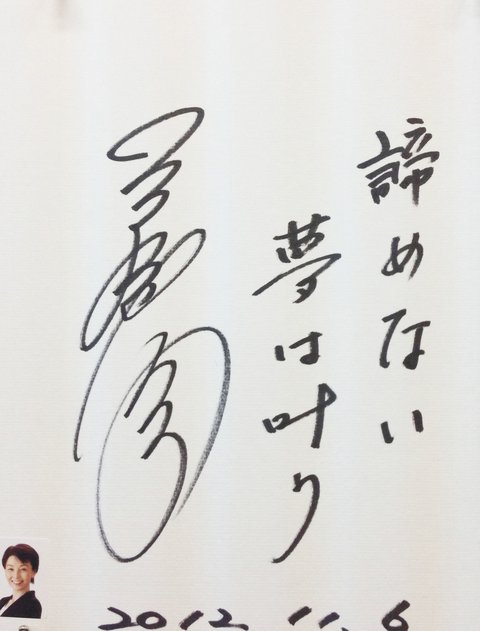 諦めない
夢は叶り
2012 11.6